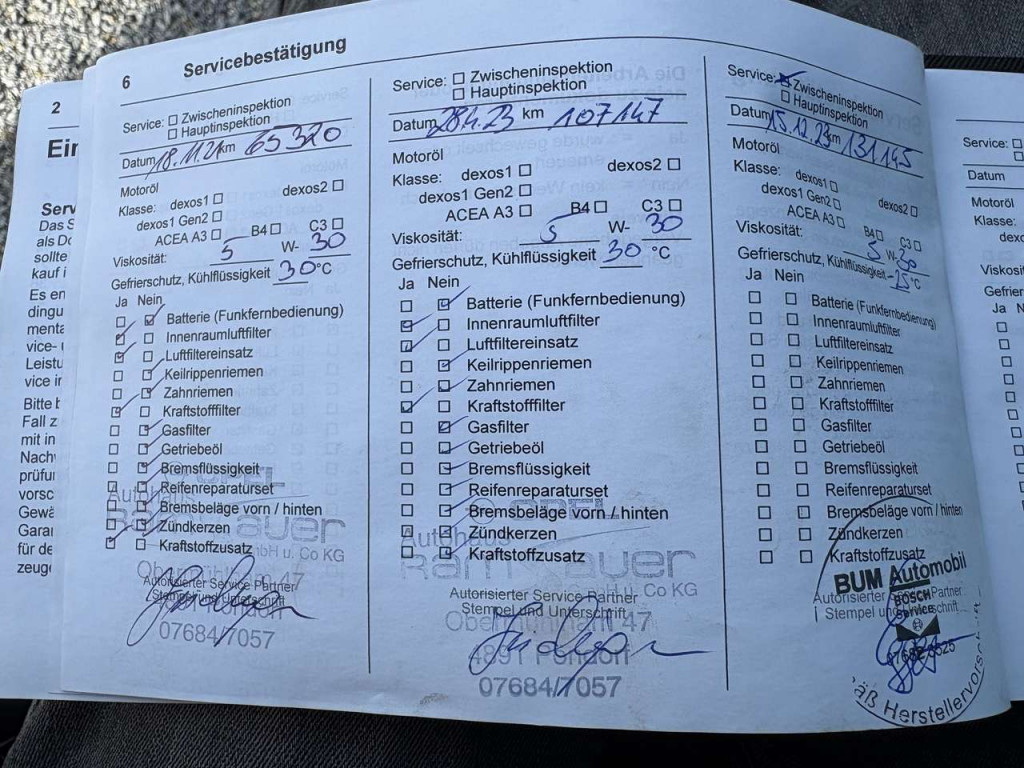 2
Ein
Serv
Das S
als Do
sollte
kauf i
Es en
dingu
menta
vice-
Leistu
vice in
Bitte b
Fall z
mit in
Nachw
prüfun
vorsc
Gewä
Garan
für de
zeuge
6 Servicebestätigung
Service: Zwischeninspektion
Hauptinspektion
Datum 18.11.21 km 65320
Motoröl
Klasse: dexos1 dexos2
dexos1 Gen2
ACEA A3 B4 C3
Viskosität: 5 W- 30
Gefrierschutz, Kühlflüssigkeit 30 °C
Ja Nein
Batterie (Funkfernbedienung)
Innenraumluftfilter
Luftfiltereinsatz
Keilrippenriemen
Zahnriemen
Kraftstofffilter
Gasfilter
Getriebeöl
Bremsflüssigkeit
Reifenreparaturset
Bremsbeläge vorn / hinten
Zündkerzen
Kraftstoffzusatz
OPEL
Autohaus
GmbH u. Co KG
Autorisierter Service Partner
Stempel und Unterschrift
07684/7057
Service: Zwischeninspektion
Hauptinspektion
Datum 28.4.23 km 107147
Motoröl
Klasse: dexos1 dexos2
dexos1 Gen2
ACEA A3 B4 C3
Viskosität: 5 W- 30
Gefrierschutz, Kühlflüssigkeit 30 °C
Ja Nein
Batterie (Funkfernbedienung)
Innenraumluftfilter
Luftfiltereinsatz
Keilrippenriemen
Zahnriemen
Kraftstofffilter
Gasfilter
Getriebeöl
Bremsflüssigkeit
Reifenreparaturset
Bremsbeläge vorn / hinten
Zündkerzen
Kraftstoffzusatz
OPEL
Autohaus
Co KG
Autorisierter Service Partner
Stempel und Unterschrift
47
07684/7057
Service: Zwischeninspektion
Hauptinspektion
Datum 15.12.23 km 131145
Motoröl
Klasse: dexos1 dexos2
dexos1 Gen2
ACEA A3 B4 C3
Viskosität: 5 W- 30
Gefrierschutz, Kühlflüssigkeit -25 °C
Ja Nein
Batterie (Funkfernbedienung)
Innenraumluftfilter
Luftfiltereinsatz
Keilrippenriemen
Zahnriemen
Kraftstofffilter
Gasfilter
Getriebeöl
Bremsflüssigkeit
Reifenreparaturset
Bremsbeläge vorn / hinten
Zündkerzen
Kraftstoffzusatz
BUM Automobil
Autorisierter Service Partner
Stempel und Unterschrift
BOSCH
Service
äß Herstellervorschrift
Service:
Datum
Motoröl
Klasse:
dexo
Viskosi
Gefrier
Ja N